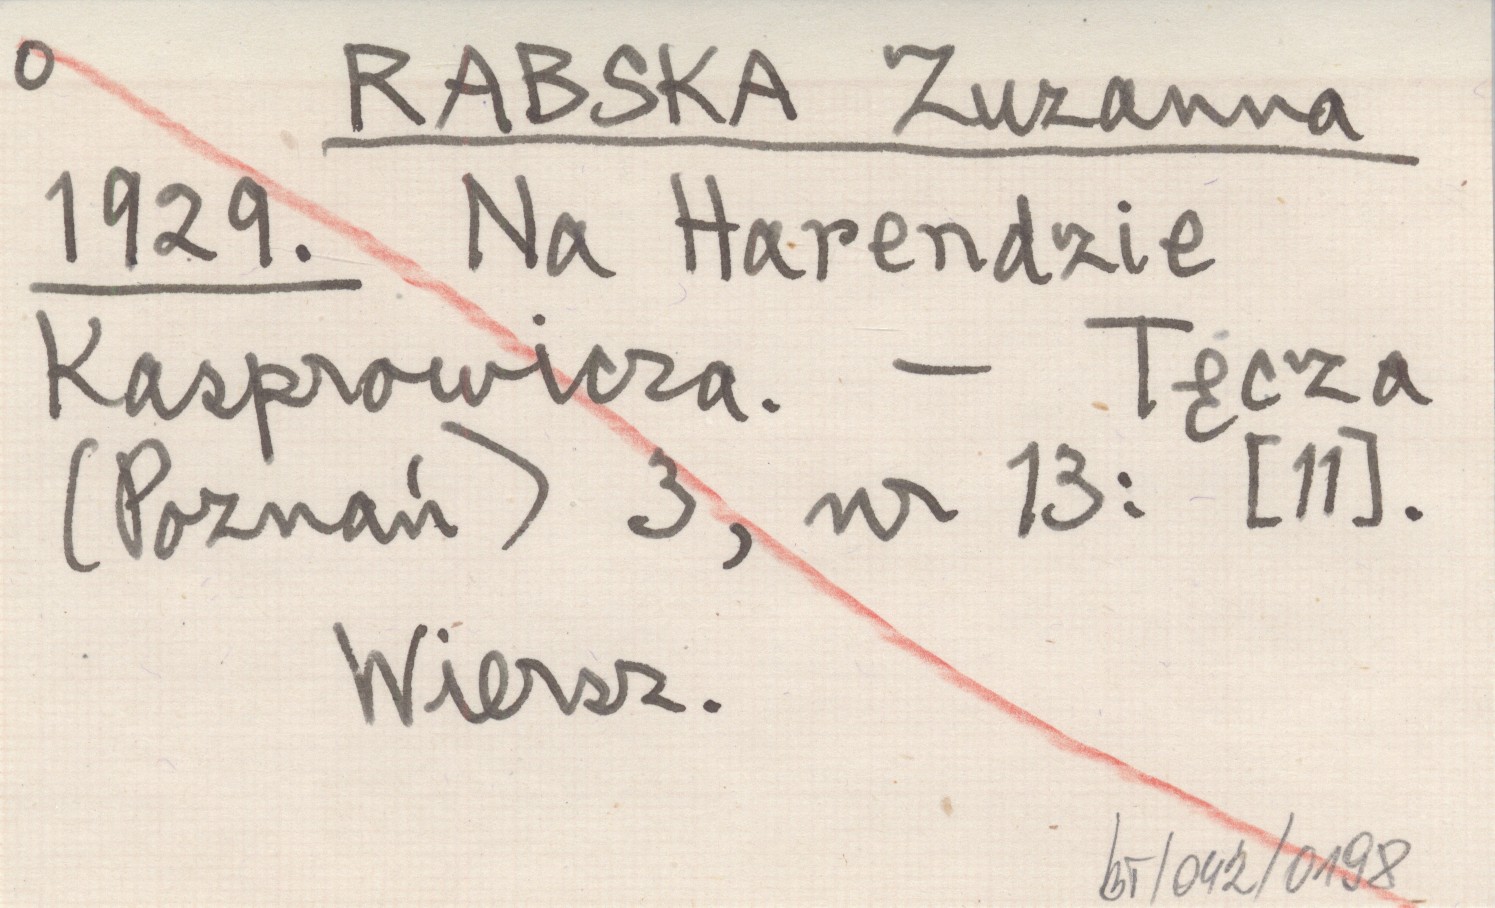 o RABSKA Zuzanna
1929. Na Harendzie
Kasprowicza. — Tęcza
(Poznań) 3, nr 13: [11].
Wiersz.
bT/042/0198